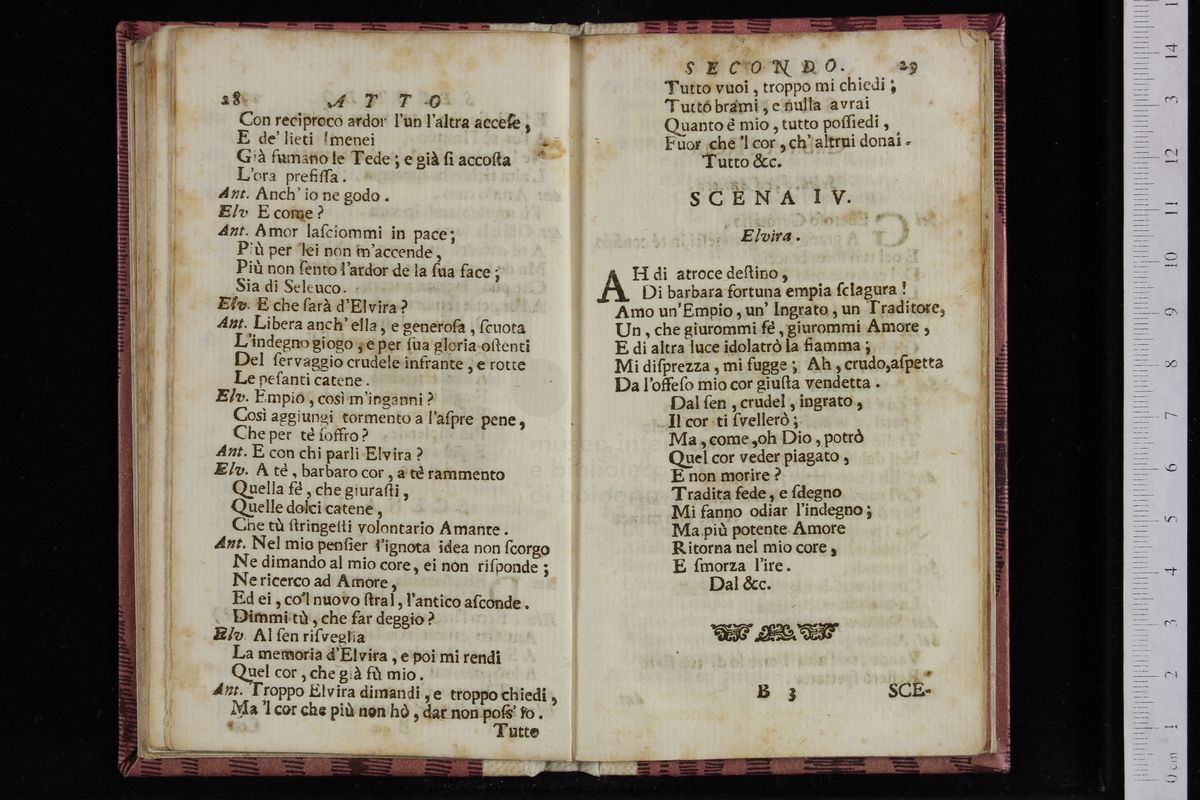 28 ATTO
Con reciproco ardor l'un l'altra acceſe,
E de' lieti Imenei
Già fumano le Tede; e già ſi accoſta
L'ora prefiſſa.
Ant. Anch' io ne godo.
Elv E come?
Ant. Amor laſciommi in pace;
Più per lei non m'accende,
Più non ſento l'ardor de la ſua face;
Sia di Seleuco.
Elv. E che ſarà d'Elvira?
Ant. Libera anch' ella, e generoſa, ſcuota
L'indegno giogo, e per ſua gloria oſtenti
Del ſervaggio crudele infrante, e rotte
Le peſanti catene.
Elv. Empio, così m'inganni?
Così aggiungi tormento a l'aſpre pene,
Che per tè ſoffro?
Ant. E con chi parli Elvira?
Elv. A tè, barbaro cor, a tè rammento
Quella fè, che giuraſti,
Quelle dolci catene,
Che tù ſtringeſti volontario Amante.
Ant. Nel mio penſier l'ignota idea non ſcorgo
Ne dimando al mio core, ei non riſponde;
Ne ricerco ad Amore,
Ed ei, co'l nuovo ſtral, l'antico aſconde.
Dimmi tù, che far deggio?
Elv. Al ſen riſveglia
La memoria d'Elvira, e poi mi rendi
Quel cor, che già fù mio.
Ant. Troppo Elvira dimandi, e troppo chiedi,
Ma 'l cor che più non hò, dar non poſs' io.
Tutto
SECONDO. 29
Tutto vuoi, troppo mi chiedi;
Tutto brami, e nulla avrai
Quanto è mio, tutto poſſiedi,
Fuor che 'l cor, ch' altrui donai.
Tutto &c.
SCENA IV.
Elvira.
AH di atroce deſtino,
Di barbara fortuna empia ſciagura!
Amo un'Empio, un' Ingrato, un Traditore,
Un, che giurommi fè, giurommi Amore,
E di altra luce idolatrò la fiamma;
Mi diſprezza, mi fugge; Ah, crudo, aſpetta
Da l'offeſo mio cor giuſta vendetta.
Dal ſen, crudel, ingrato,
Il cor ti ſvellerò;
Ma, come, oh Dio, potrò
Quel cor veder piagato,
E non morire?
Tradita fede, e ſdegno
Mi fanno odiar l'indegno;
Ma più potente Amore
Ritorna nel mio core,
E ſmorza l'ire.
Dal &c.
B 3 SCE-